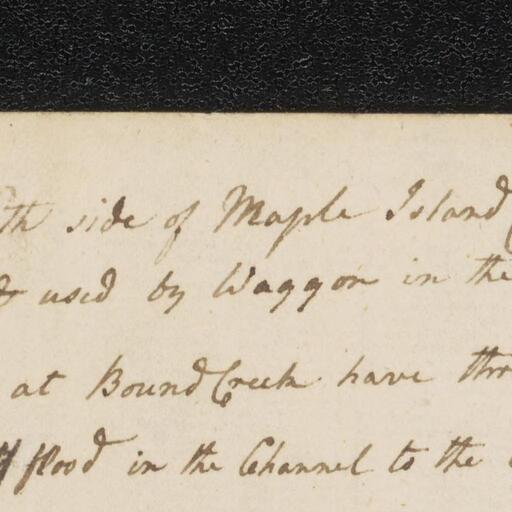 side of Maple Island
used by Waggon in the
at Bound Creek have
flood in the Channel to the